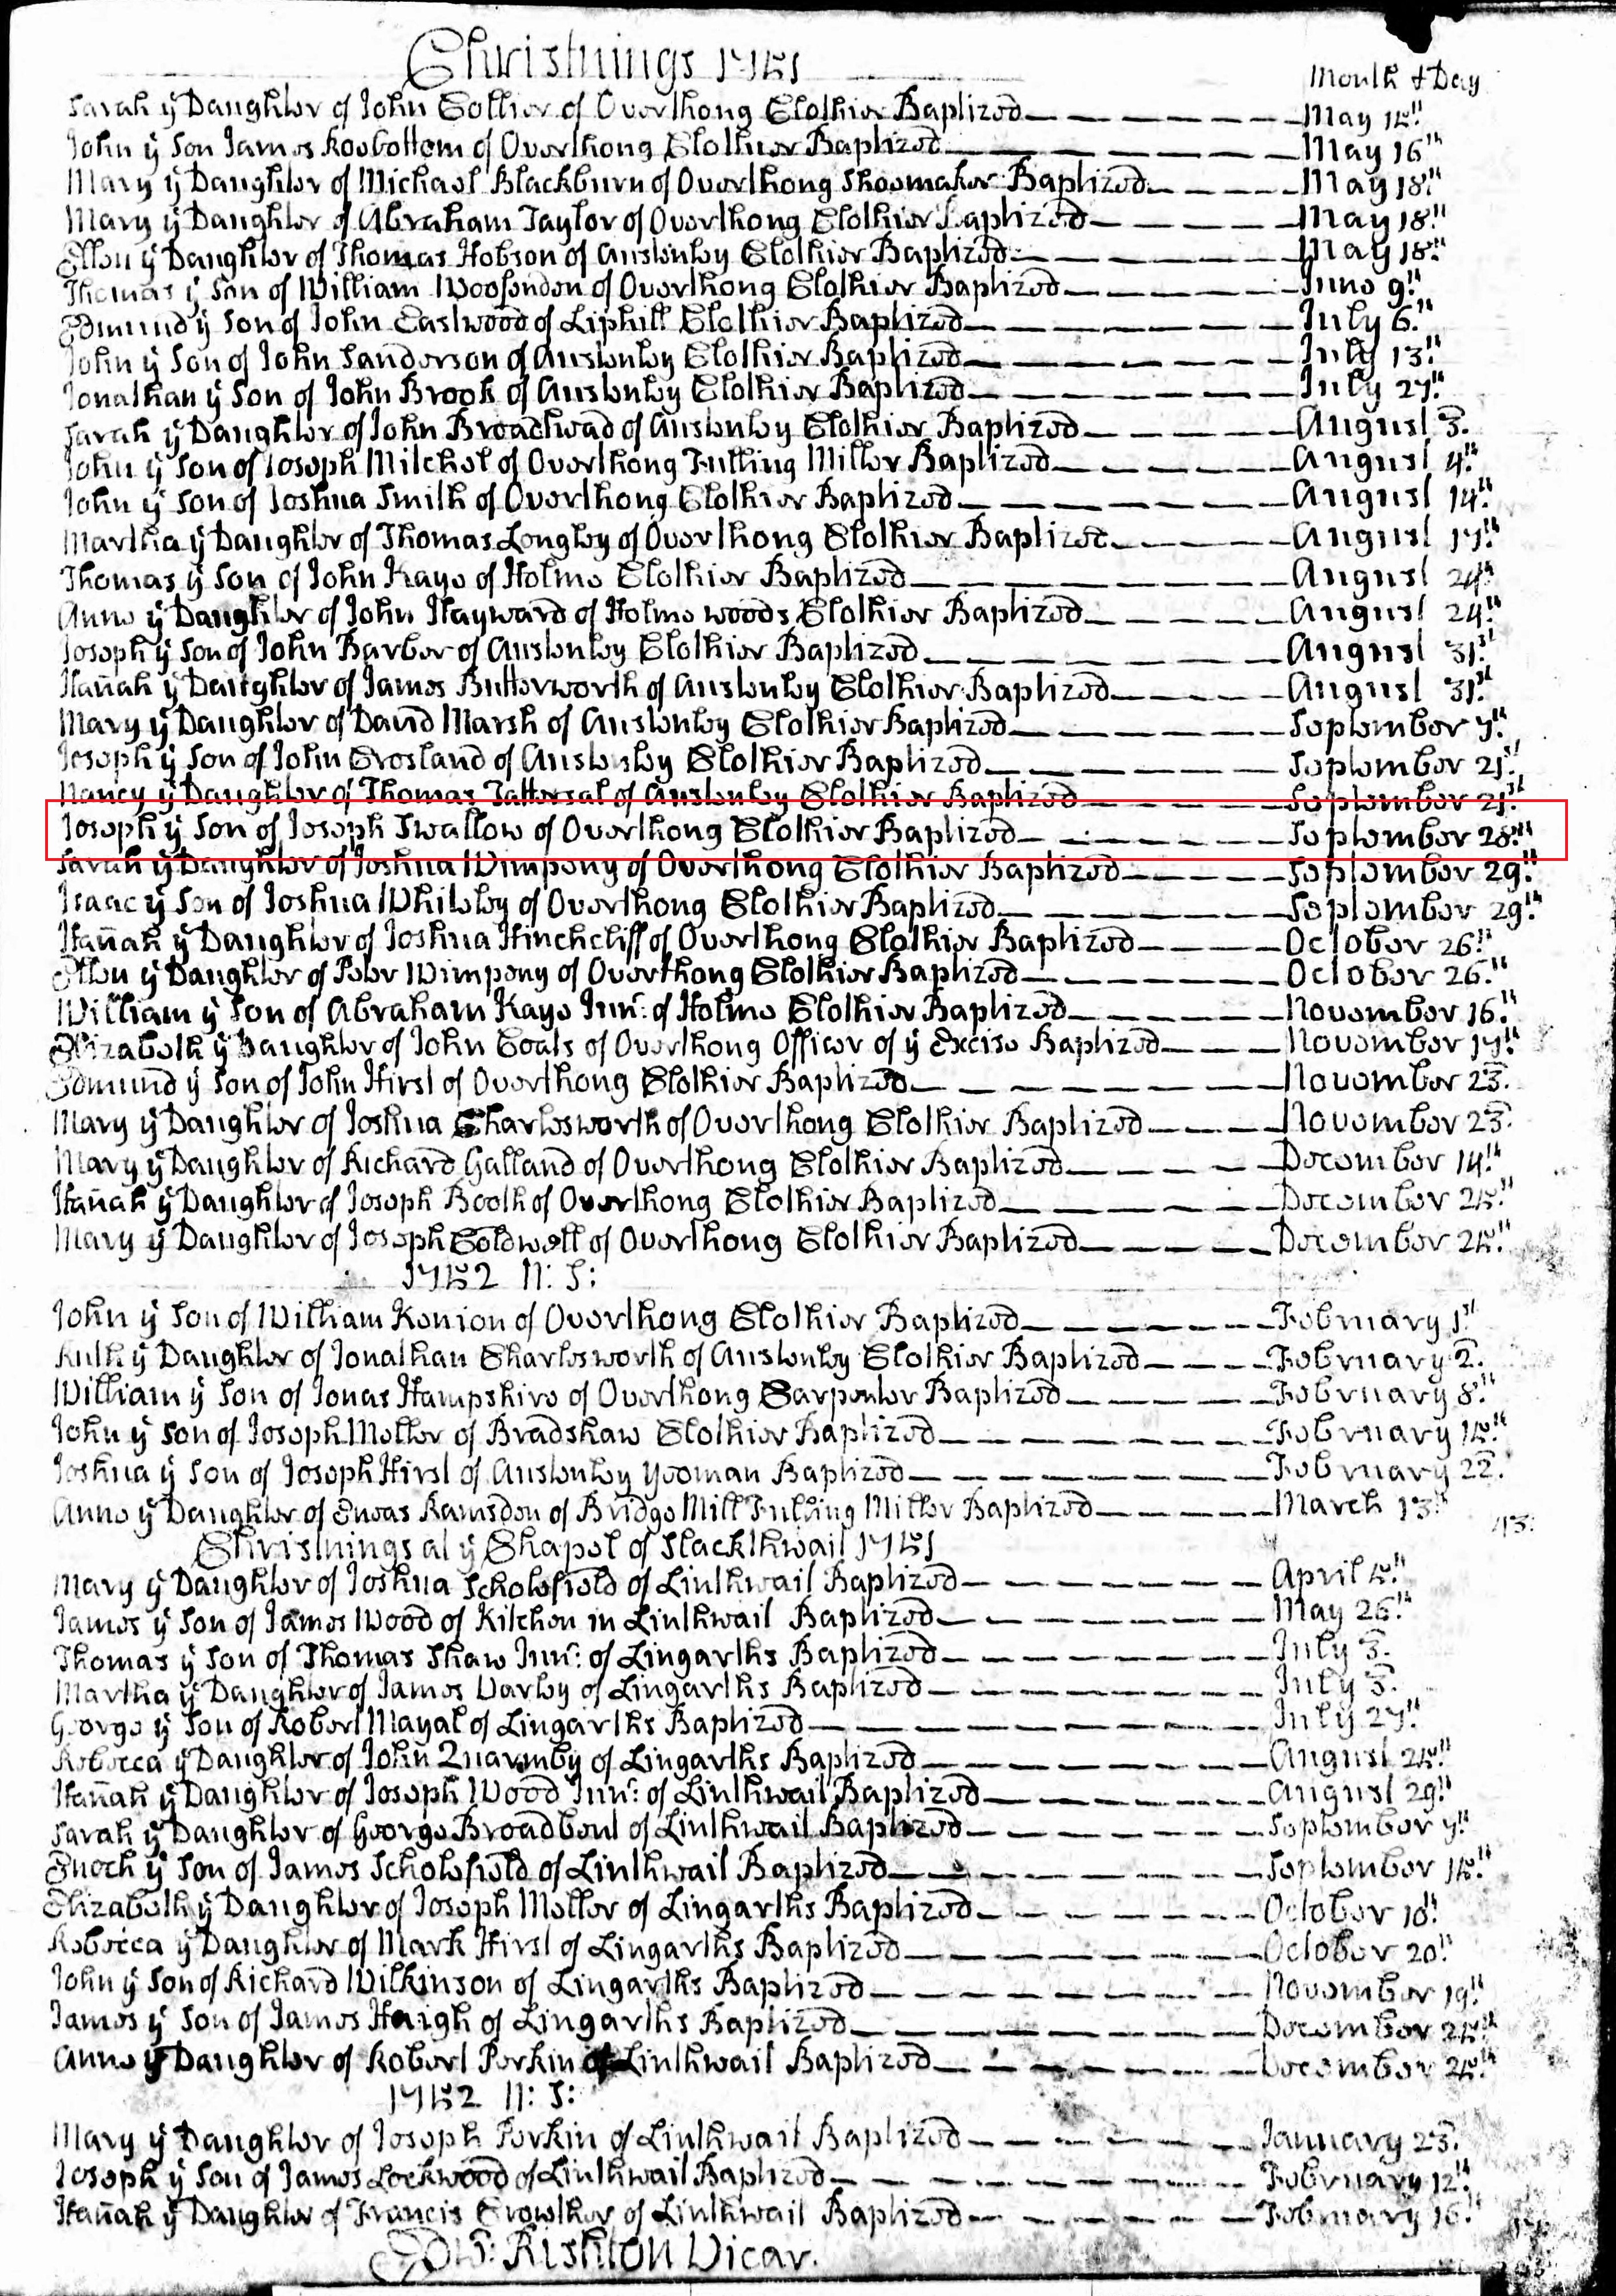 Christnings 1751
Month & Day
Sarah ÿ Daughter of John Collier of Overthong Clothier Baptized May 15th
John ÿ Son James Roebottom of Overthong Clothier Baptized May 16th
Mary ÿ Daughter of Michael Blackburn of Overthong Shoemaker Baptized May 18th
Mary ÿ Daughter of Abraham Taylor of Overthong Clothier Baptized May 18th
Ellen ÿ Daughter of Thomas Hobson of Austenley Clothier Baptized May 18th
Thomas ÿ Son of William Woofenden of Overthong Clothier Baptized June 9th
Edmund ÿ Son of John Eastwood of Liphill Clothier Baptized July 6th
John ÿ Son of John Sanderson of Austenley Clothier Baptized July 13th
Jonathan ÿ Son of John Brook of Austenley Clothier Baptized July 27th
Sarah ÿ Daughter of John Broadhead of Austenley Clothier Baptized August 3d
John ÿ Son of Joseph Mitchel of Overthong Fulling Miller Baptized August 4th
John ÿ Son of Joshua Smith of Overthong Clothier Baptized August 14th
Martha ÿ Daughter of Thomas Longley of Overthong Clothier Baptized August 17th
Thomas ÿ Son of John Kaye of Holme Clothier Baptized August 24th
Anne ÿ Daughter of John Hayward of Holme woods Clothier Baptized August 24th
Joseph ÿ Son of John Barber of Austenley Clothier Baptized August 31st
Hañah ÿ Daughter of James Butterworth of Austenley Clothier Baptized August 31st
Mary ÿ Daughter of David Marsh of Austenley Clothier Baptized September 7th
Joseph ÿ Son of John Crosland of Austenley Clothier Baptized September 21st
Nancy ÿ Daughter of Thomas Tattersal of Austenley Clothier Baptized September 21st
Joseph ÿ Son of Joseph Swallow of Overthong Clothier Baptized September 28th
Sarah ÿ Daughter of Joshua Wimpeny of Overthong Clothier Baptized September 29th
Isaac ÿ Son of Joshua Whiteley of Overthong Clothier Baptized September 29th
Hañah ÿ Daughter of Joshua Hinchcliff of Overthong Clothier Baptized October 26th
Ellen ÿ Daughter of Peter Wimpeny of Overthong Clothier Baptized October 26th
William ÿ Son of Abraham Kaye Junr: of Holme Clothier Baptized November 16th
Elizabeth ÿ Daughter of John Coats of Overthong Officer of ÿ Excise Baptized November 17th
Edmund ÿ Son of John Hirst of Overthong Clothier Baptized November 23d
Mary ÿ Daughter of Joshua Charlesworth of Overthong Clothier Baptized November 23d
Mary ÿ Daughter of Richard Galland of Overthong Clothier Baptized December 14th
Hañah ÿ Daughter of Joseph Booth of Overthong Clothier Baptized December 25th
Mary ÿ Daughter of Joseph Coldwell of Overthong Clothier Baptized December 25th
1752 N: S:
John ÿ Son of William Kenion of Overthong Clothier Baptized February 1st
Ruth ÿ Daughter of Jonathan Charlesworth of Austenley Clothier Baptized February 2d
William ÿ Son of Jonas Hampshire of Overthong Carpenter Baptized February 8th
John ÿ Son of Joseph Mellor of Bradshaw Clothier Baptized February 15th
Joshua ÿ Son of Joseph Hirst of Austenley Yeoman Baptized February 22d
Anne ÿ Daughter of Eneas Ramsden of Bridge Mill Fulling Miller Baptized March 13th
43:
Christnings at ÿ Chapel of Slackthwait 1751
Mary ÿ Daughter of Joshua Scholefield of Linthwait Baptized April 5th
James ÿ Son of James Wood of Kitchen in Linthwait Baptized May 26th
Thomas ÿ Son of Thomas Shaw Junr: of Lingarths Baptized July 3d
Martha ÿ Daughter of James Varley of Lingarths Baptized July 3d
George ÿ Son of Robert Mayal of Lingarths Baptized July 27th
Rebecca ÿ Daughter of John Quarmby of Lingarths Baptized August 25th
Hañah ÿ Daughter of Joseph Wood Junr: of Linthwait Baptized August 29th
Sarah ÿ Daughter of George Broadbent of Linthwait Baptized September 7th
Enoch ÿ Son of James Scholefield of Linthwait Baptized September 15th
Elizabeth ÿ Daughter of Joseph Mellor of Lingarths Baptized October 10th
Rebecca ÿ Daughter of Mark Hirst of Lingarths Baptized October 20th
John ÿ Son of Richard Wilkinson of Lingarths Baptized November 19th
James ÿ Son of James Haigh of Lingarths Baptized December 25th
Anne ÿ Daughter of Robert Perkin of Linthwait Baptized December 25th
1752 N: S:
Mary ÿ Daughter of Joseph Perkin of Linthwait Baptized January 23d
Joseph ÿ Son of James Lockwood of Linthwait Baptized February 12th
Hañah ÿ Daughter of Francis Crowther of Linthwait Baptized February 16th
Edw: Rishton Vicar.